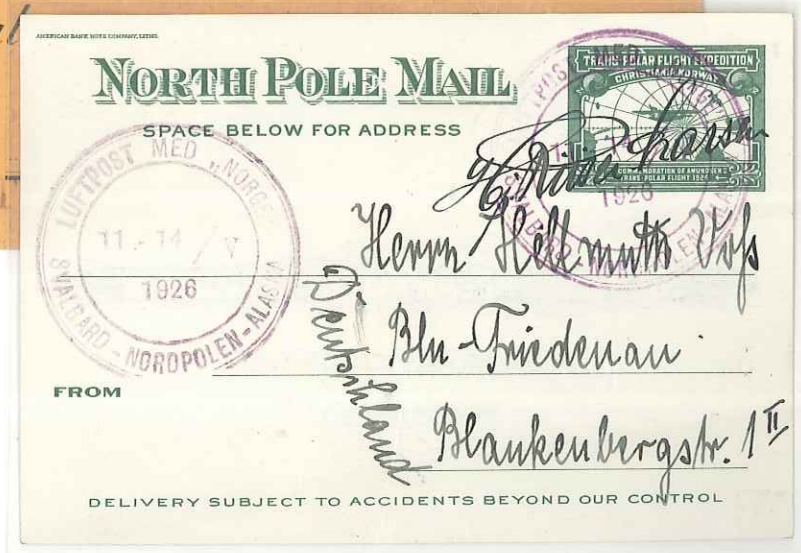 AMERICAN BANK NOTE COMPANY, LITHO.
NORTH POLE MAIL
SPACE BELOW FOR ADDRESS
TRANS-POLAR FLIGHT EXPEDITION
CHRISTIANIA NORWAY
COMMEMORATION OF AMUNDSEN'S
TRANS-POLAR FLIGHT 1924
LUFTPOST MED "NORGE"
11.-14/V
1926
SVALBARD - NORDPOLEN - ALASKA
LUFTPOST MED
1926
Herrn Hellmuth Voss
Bln-Friedenau.
Blankenbergstr. 1 II
Deutschland
FROM
DELIVERY SUBJECT TO ACCIDENTS BEYOND OUR CONTROL